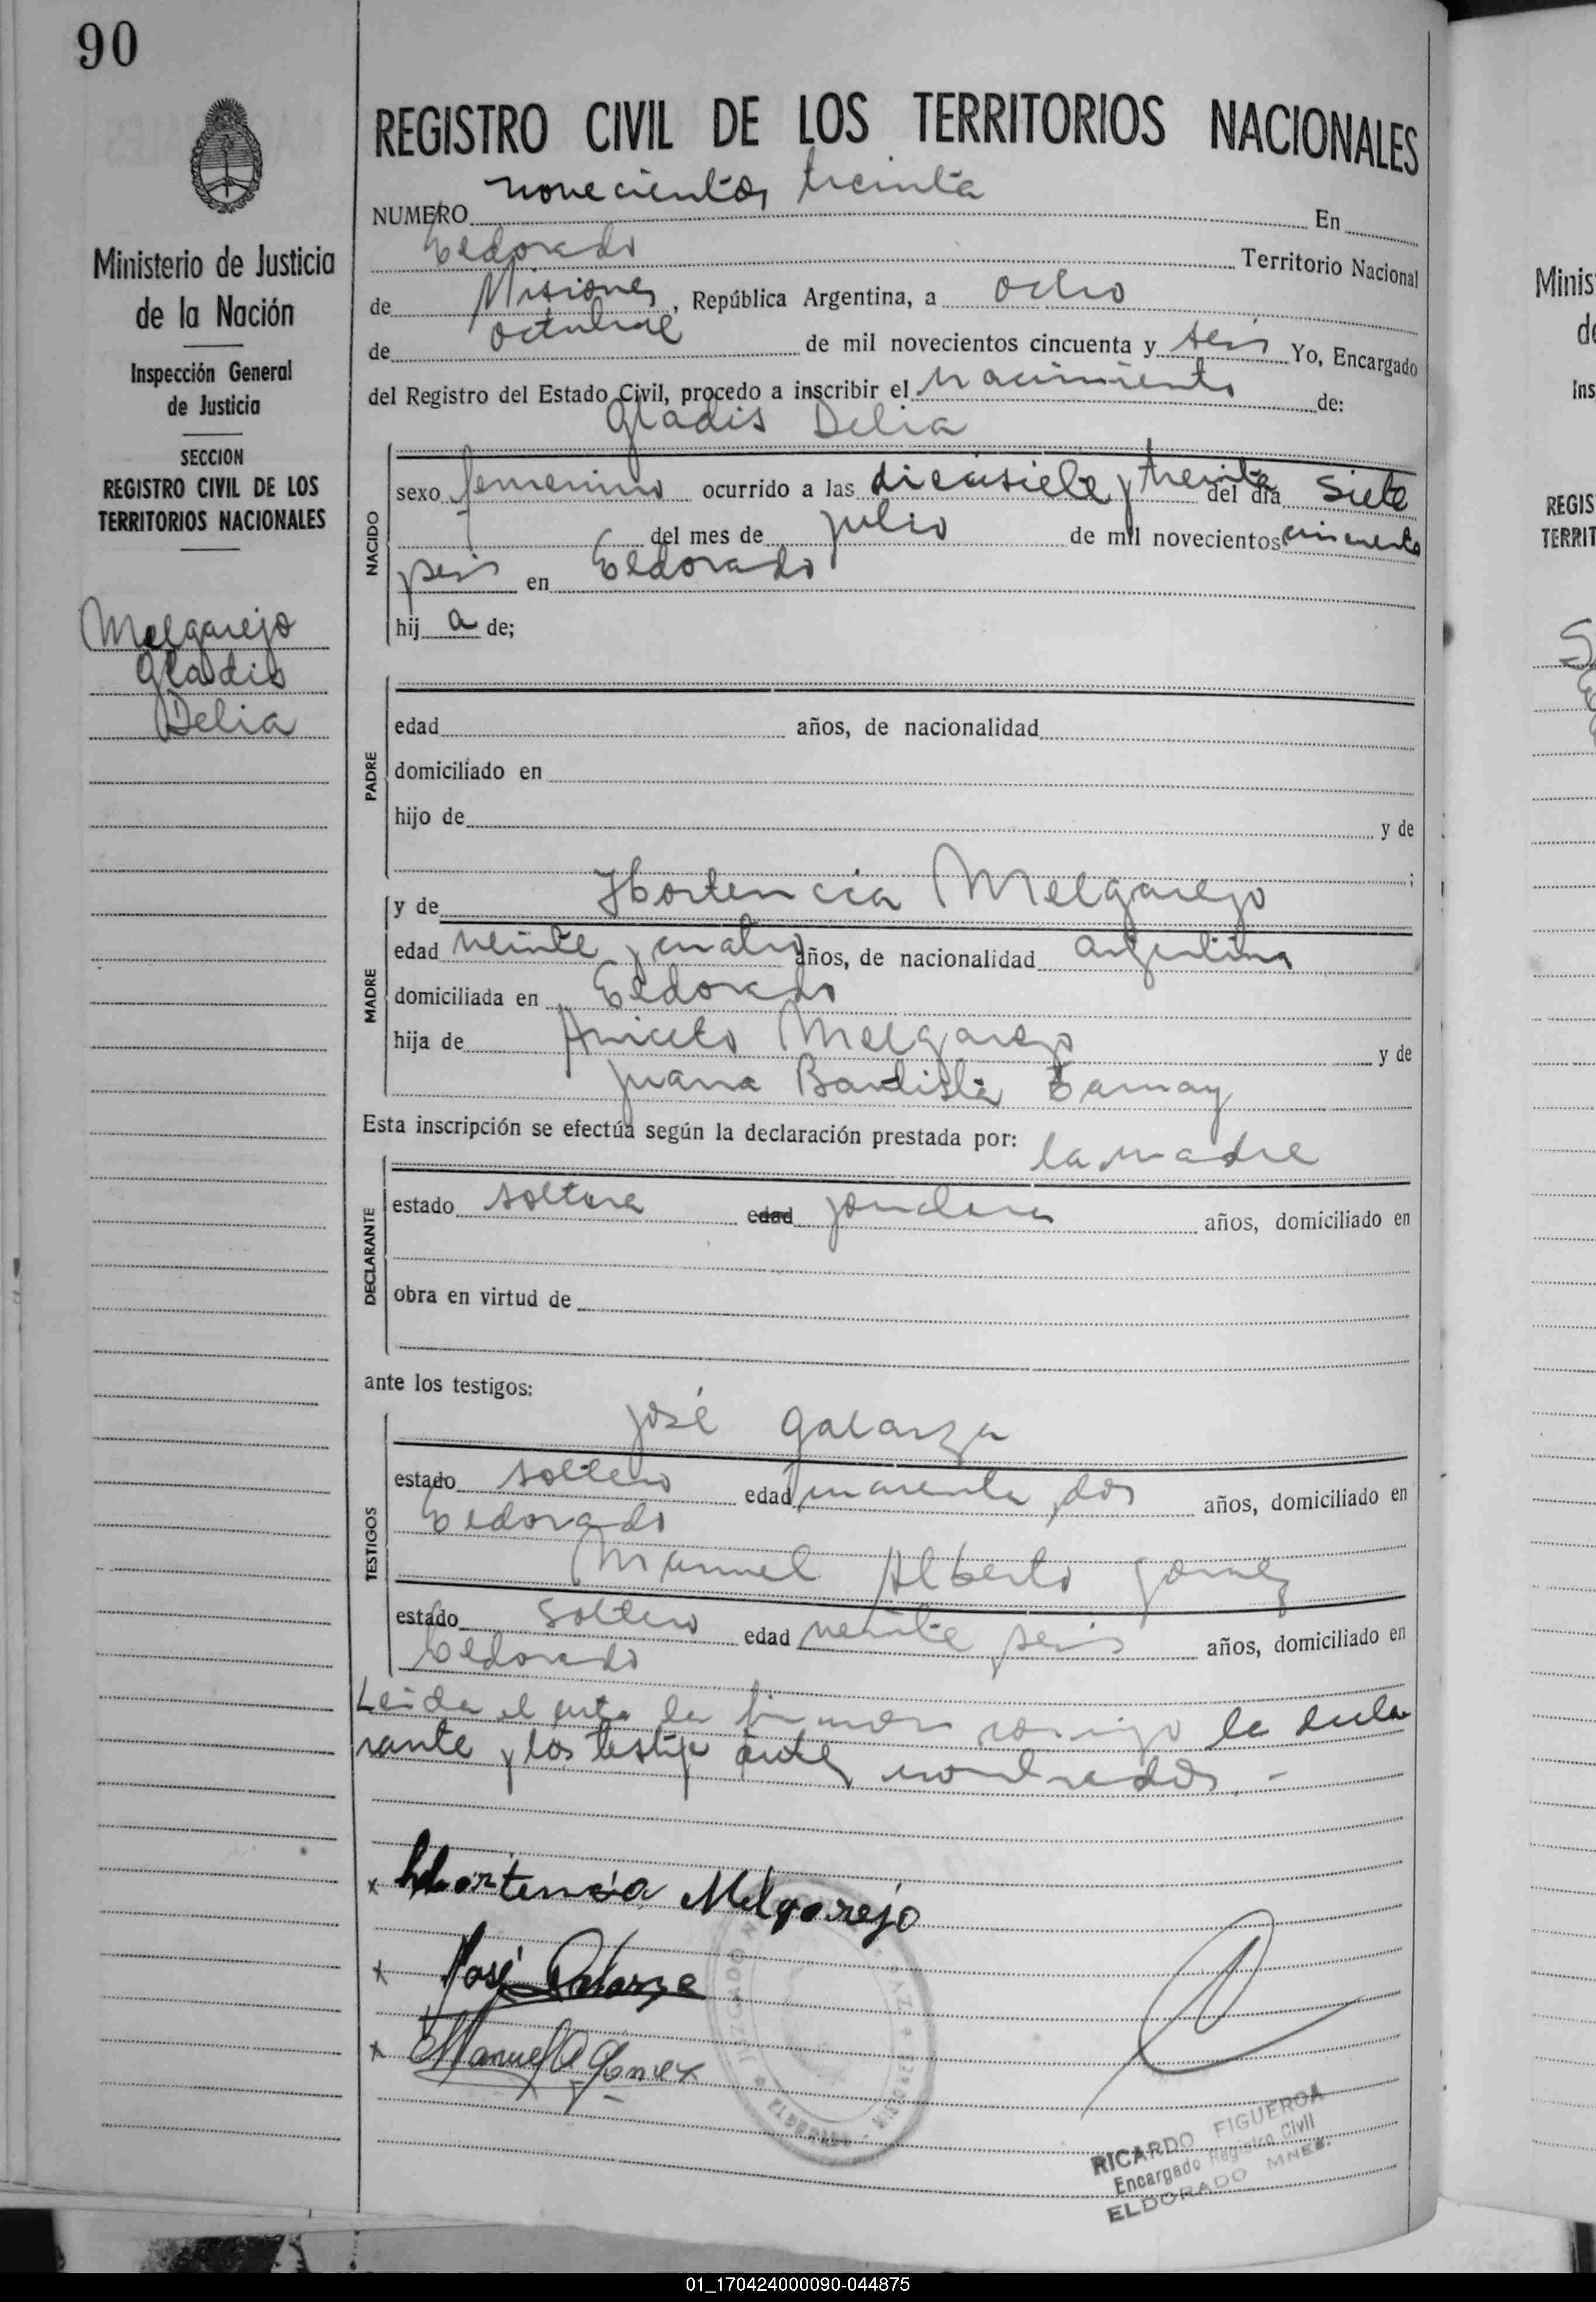 90
Ministerio de Justicia
de la Nación
Inspección General
de Justicia
SECCION
REGISTRO CIVIL DE LOS
TERRITORIOS NACIONALES
Melgarejo
Gladis
Delia
REGISTRO CIVIL DE LOS TERRITORIOS NACIONALES
NUMERO novecientos treinta En
Eldorado Territorio Nacional
de Misiones, República Argentina, a ocho
de octubre de mil novecientos cincuenta y seis Yo, Encargado
del Registro del Estado Civil, procedo a inscribir el nacimiento de:
Gladis Delia
NACIDO
sexo femenino ocurrido a las diecisiete y treinta del día siete
del mes de julio de mil novecientos cincuenta
seis en Eldorado
hij a de;
PADRE
edad años, de nacionalidad
domiciliado en
hijo de y de
;
MADRE
y de Hortencia Melgarejo
edad veinte y cuatro años, de nacionalidad argentina
domiciliada en Eldorado
hija de Aniceto Melgarejo y de
Juana Bautista
Esta inscripción se efectúa según la declaración prestada por: la madre
DECLARANTE
estado soltera edad años, domiciliado en
obra en virtud de
ante los testigos:
TESTIGOS
José Galarza
estado soltero edad cuarenta y dos años, domiciliado en
Eldorado
Manuel Alberto Gomez
estado soltero edad veinte seis años, domiciliado en
Eldorado
Leida el acta la firman conmigo la decla
rante y los testigos antes nombrados.-
x Hortencia Melgarejo
x José Galarza
x Manuel A Gomez
RICARDO FIGUEROA
Encargado Registro Civil
ELDORADO MNES.
Minis
de
Ins
REGIS
TERRIT
01_170424000090-044875